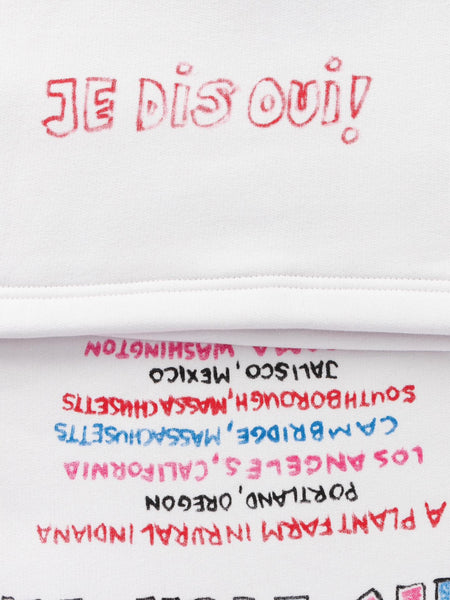 JE DIS OUI!
A PLANT FARM IN RURAL INDIANA
PORTLAND, OREGON
LOS ANGELES, CALIFORNIA
CAMBRIDGE, MASSACHUSETTS
SOUTHBOROUGH, MASSACHUSETTS
JALISCO, MEXICO
WASHINGTON